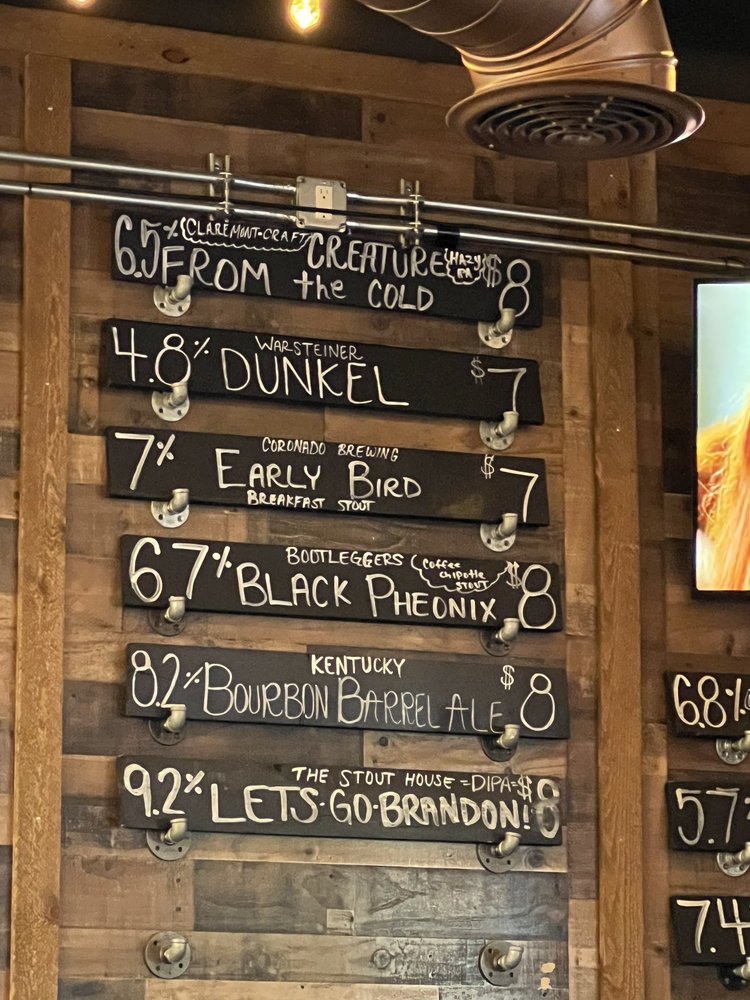 6.5% CLAREMONT-CRAFT CREATURE HAZY IPA $8
FROM the COLD
WARSTEINER
4.8% DUNKEL $7
CORONADO BREWING
7% EARLY BIRD $7
BREAKFAST STOUT
BOOTLEGGERS Coffee chipotle STOUT
6.7% BLACK PHEONIX $8
KENTUCKY
8.2% BOURBON BARREL ALE $8
THE STOUT HOUSE =DIPA=
9.2% LETS·GO·BRANDON! $8
6.8%
5.7
7.4